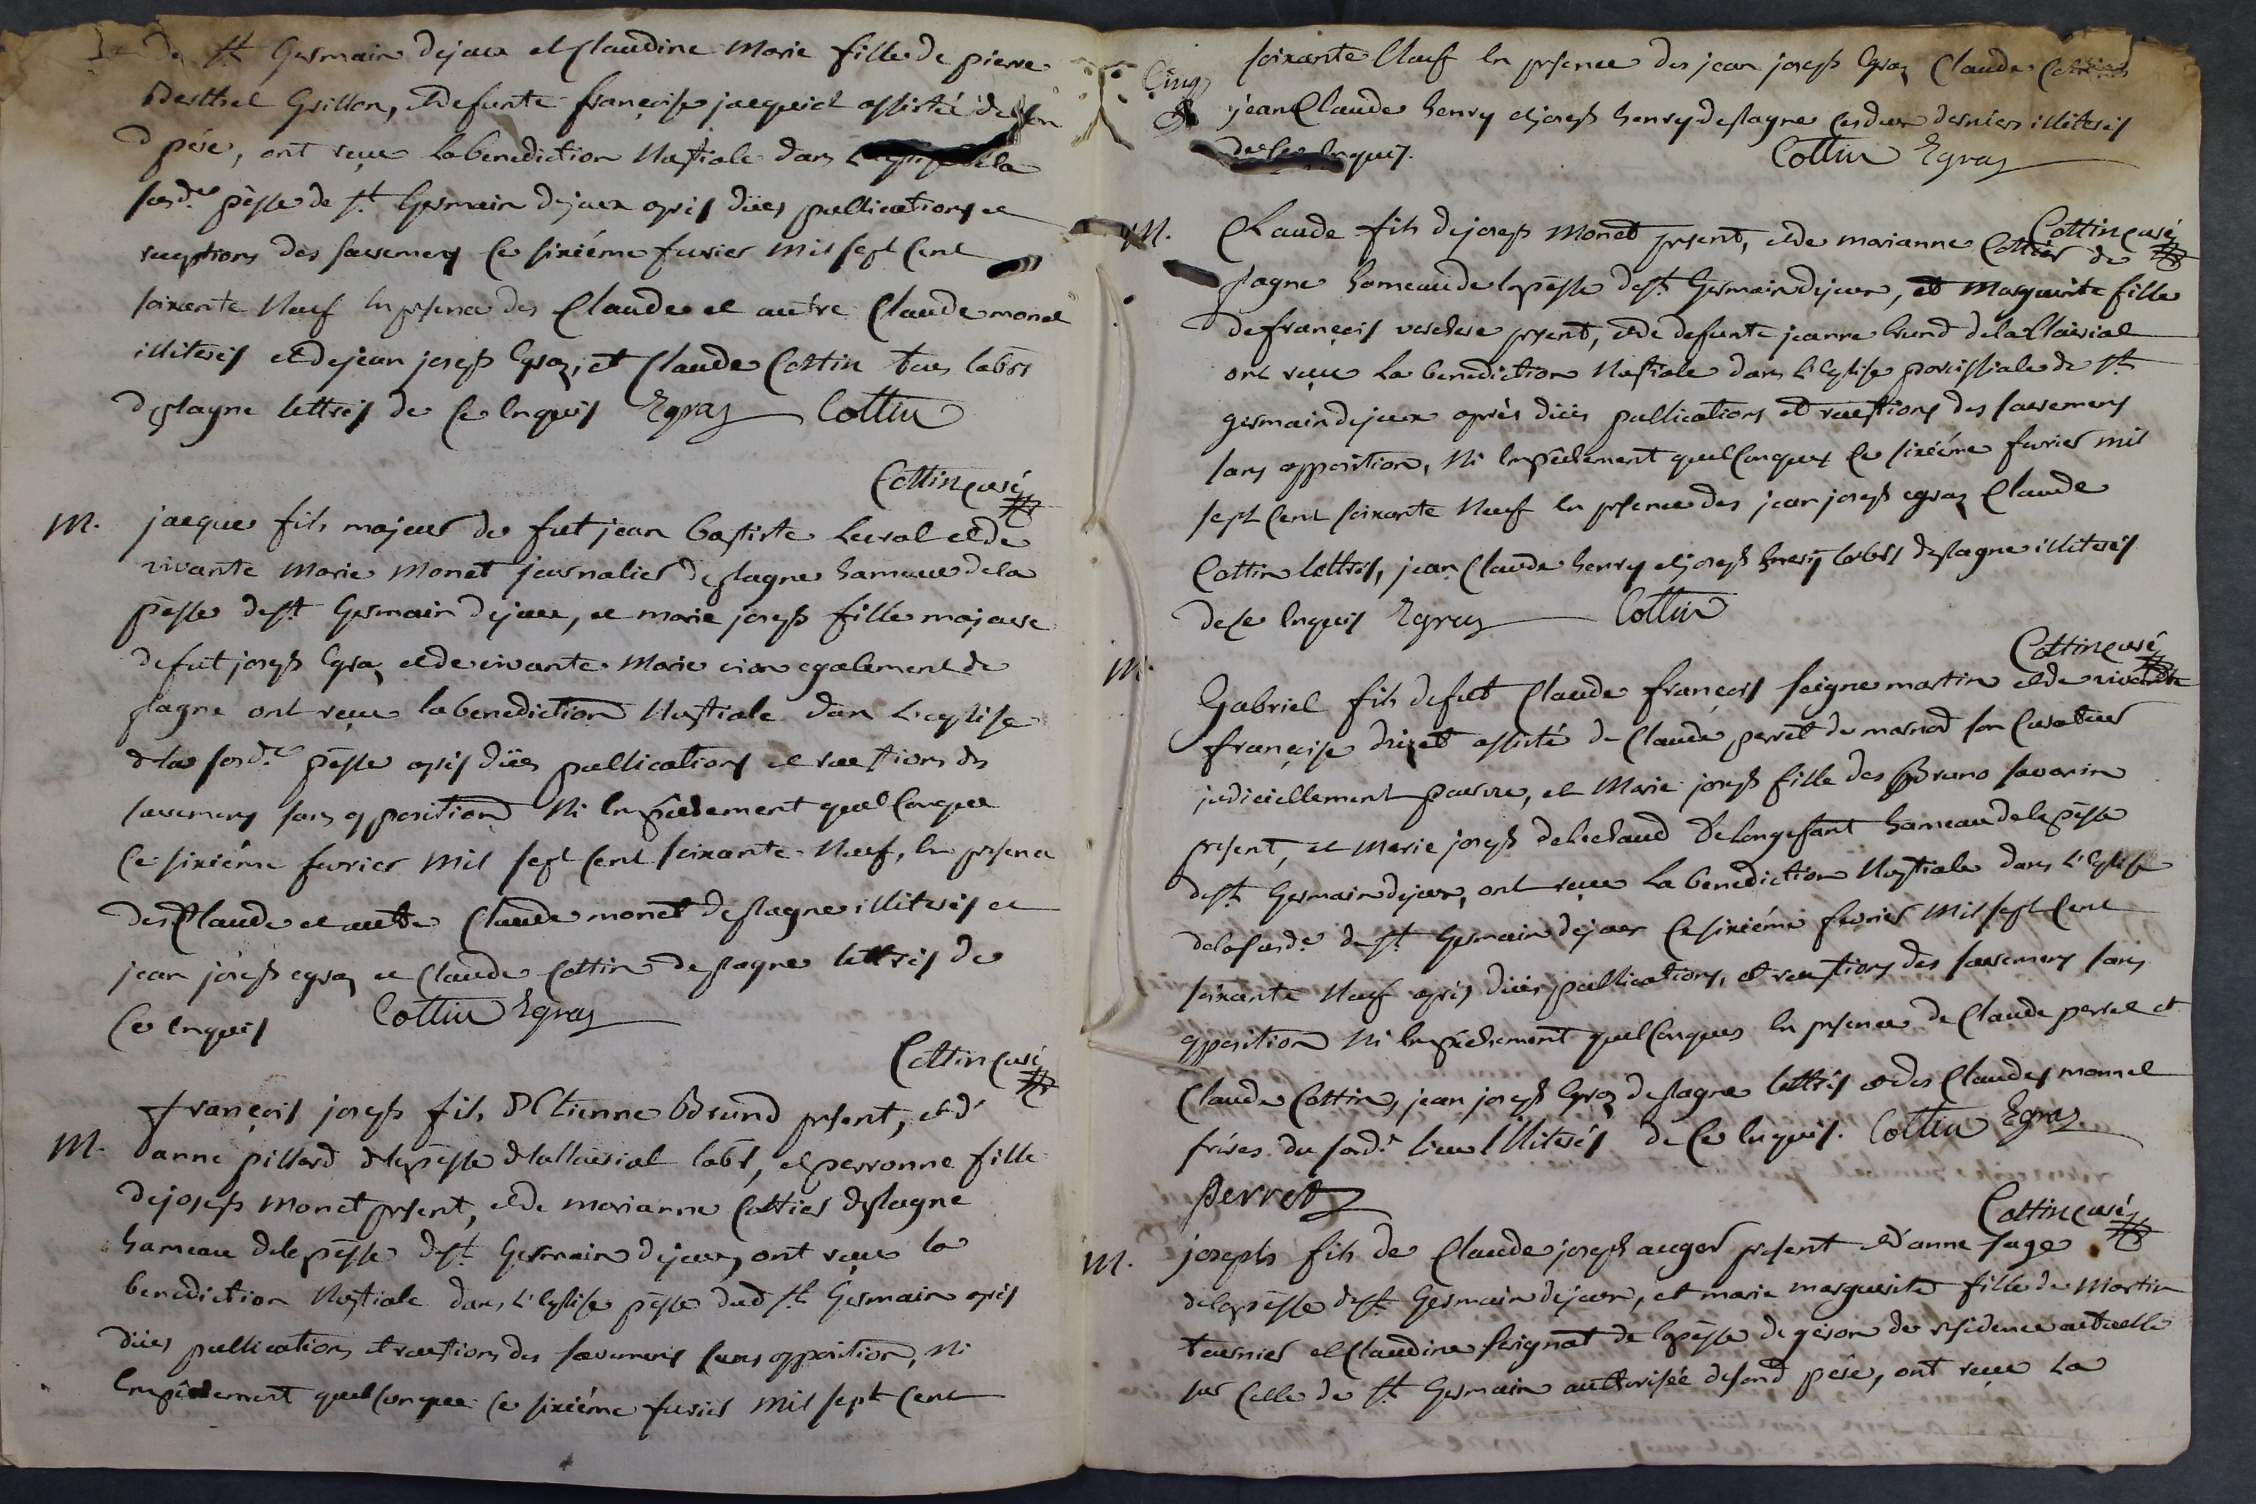 de st Germain dejoux et Claudine Marie fille de pierre
Berthet Grillon, et defunte françoise jacquiot assistée de son
d père, ont reçue la benediction Nuptiale dans
susd.e pèsse de st Germain dejoux après düës publications et
receptions des sacremens Ce sixiéme fuvrier mil sept Cent
soixante Neuf En psence des Claude et autre Claude monet
illiterés et de jean joseph Egraz, et Claude Cottin tous labrs
de plagne lettrés de Ce Enquis Egraz Cottin
Cottin curé
M. jacque fils majeur de fut jean baptiste et de
vivante Marie Monet journalier de plagne hameau de la
pèsse de st Germain dejoux, et marie joseph fille majeure
de fut joseph Egraz et de vivante Marie également de
plagne ont reçue la benediction Nuptiale dans L'eglise
de la susd.e pèsse après düës publications et receptions des
sacremens sans opposition Ni Empêchement quelConque
Ce sixiéme fuvrier Mil sept Cent soixante Neuf, En psence
des Claude et autre Claude monet de plagne illiterés et
jean joseph egraz et Claude Cottin de plagne lettrés de
Ce Enquis Cottin Egraz
Cottin Curé
M. françois joseph fils D'Etienne Brund psent, et d'
anne pillard de la pèsse de lalleirial labr, et perronne fille
de joseph Monet psent, et de marianne Cottier de plagne
hameau de la pèsse de st Germain dejoux, ont reçue la
benediction Nuptiale dans L'Eglise pèsse dud st Germain après
düës publications et receptions des sacremens sans opposition, Ni
Empêchement quelConque Ce sixiéme fuvrier Mil sept Cent
Cinq
soixante Neuf En psence des jean joseph Egraz Claude Cottin
jean Claude henry et joseph henry de plagne Ces deux derniers illiterés
de Ce Enquis. Cottin Egraz
Cottin curé
M. Claude fils de joseph Monet psent, et de marianne Cottier de
plagne hameau de la pèsse de st Germain dejoux, et Marguerite fille
de françois psent, et de defunte jeanne brund de lalleirial
ont reçue La benediction Nuptiale dans L'Eglise paroissiale de st
germain dejoux après düës publications et receptions des sacremens
sans opposition, Ni Empêchement quelConques Ce sixiéme fuvrier mil
sept Cent soixante Neuf En psence des jean joseph egraz Claude
Cottin lettrés, jean Claude henry et joseph henry labrs de plagne illiterés
de Ce Enquis Egraz Cottin
Cottin curé
M. Gabriel fils de fut Claude françois seigne martin et de vivante
françoise assisté de Claude perret de marnod son Curateur
judiciellement, et Marie joseph fille des Bruno savarin
present, et Marie joseph de Longefant hameau de la pèsse
de st Germain dejoux, ont reçue La benediction Nuptiale dans L'Eglise
de la susd.e de st Germain dejoux Ce sixiéme fevrier Mil sept Cent
soixante Neuf après düës publications, et receptions des sacremens sans
opposition Ni Empêchement quelConques En psence de Claude perret et
Claude Cottin, jean joseph Egraz de plagne lettrés et des Claudes monnet
fréres du susd.t lieu Illiterés de Ce Enquis. Cottin Egraz
perret
Cottin curé
M. joseph fils de Claude joseph auger present et d'anne sage
de la pèsse de st Germain dejoux, et marie marguerite fille de Martin
tournier et Claudine seignat de la pèsse de giron de residence actuelle
sur Celle de st Germain authorisée de sond père, ont reçue La